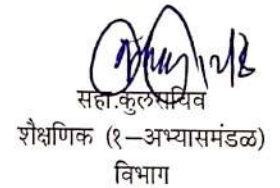 सहा.कुलसचिव
शैक्षणिक (१–अभ्यासमंडळ)
विभाग